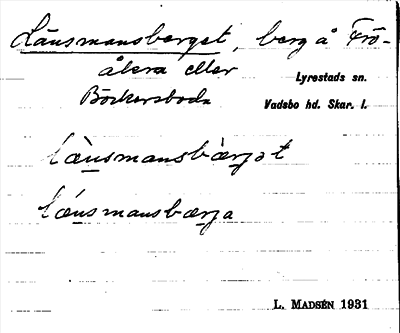 Länsmansberget, berg å Frö-
åkra eller
Böckersboda
Lyrestads sn.
Vadsbo hd. Skar. l.
læ̀nsmansbæ̀rjət
lǽnsmansbærja
L. MADSÉN 1931